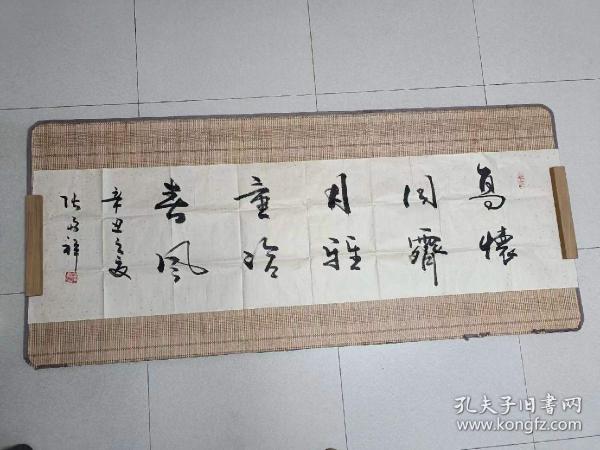 高懷
同霽
月雅
量洽
春风
辛丑之夏
张祥
孔夫子旧书网
www.kongfz.com